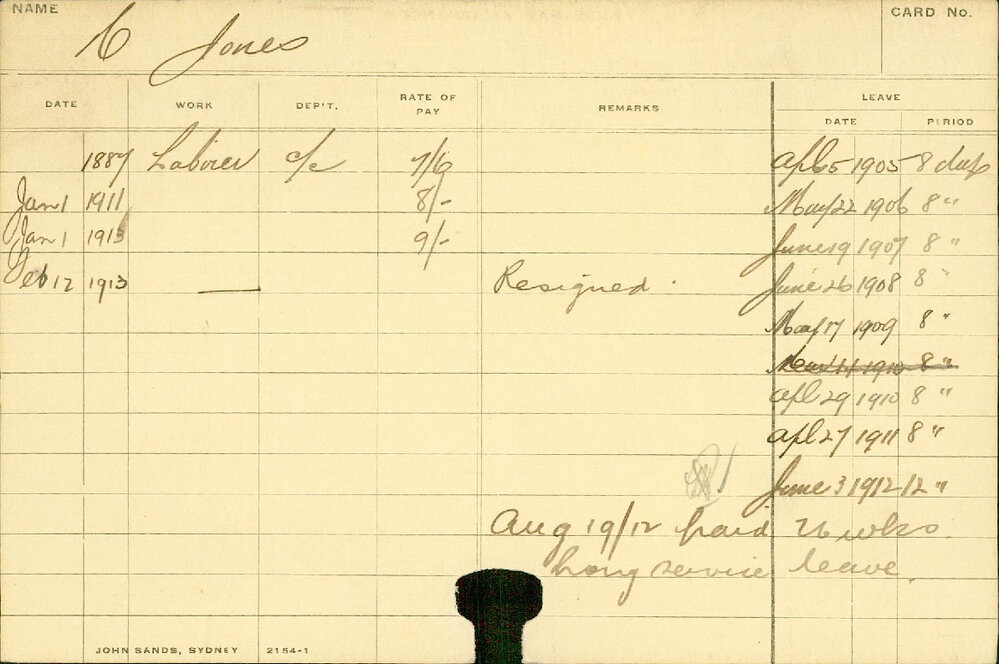 NAME CARD No.
C Jones
DATE WORK DEP'T. RATE OF PAY REMARKS LEAVE
DATE PERIOD
1887 Laborer c/c 7/6 Apl 5 1905 8 days
Jan 1 1911 8/- May 22 1906 8 "
Jan 1 1913 9/- June 19 1907 8 "
Feb 12 1913 — Resigned. June 26 1908 8 "
May 17 1909 8 "
1910 8 "
Apl 29 1910 8 "
Apl 27 1911 8 "
June 3 1912 12 "
Aug 19/12 paid 26 wks
Long service leave.
JOHN SANDS, SYDNEY 2154-1